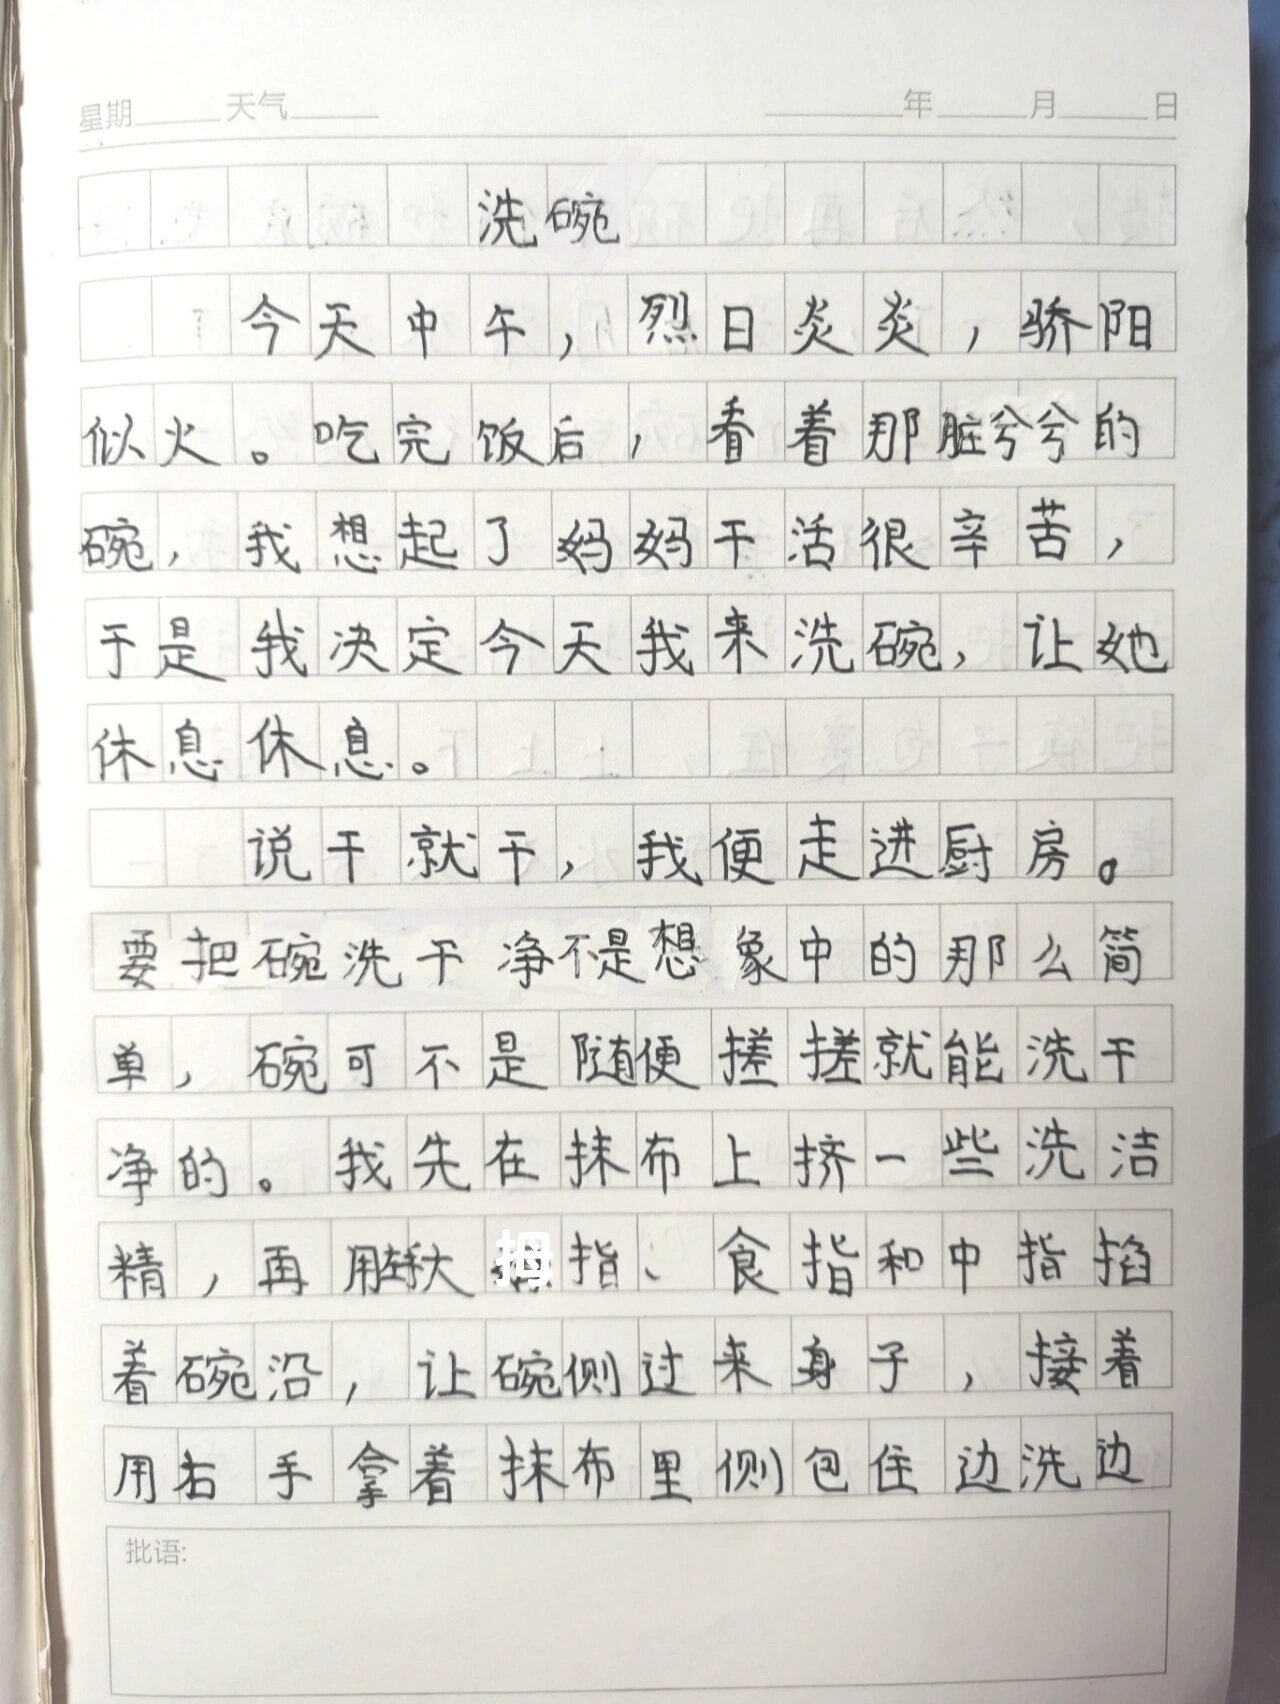 星期 天气 年 月 日
洗碗
今天中午，烈日炎炎，骄阳
似火。吃完饭后，看着那脏兮兮的
碗，我想起了妈妈干活很辛苦，
于是我决定今天我来洗碗，让她
休息休息。
说干就干，我便走进厨房。
要把碗洗干净不是想象中的那么简
单，碗可不是随便搓搓就能洗干
净的。我先在抹布上挤一些洗洁
精，再用大拇指、食指和中指掐
着碗沿，让碗侧过来身子，接着
用右手拿着抹布里侧包住边洗边
批语: